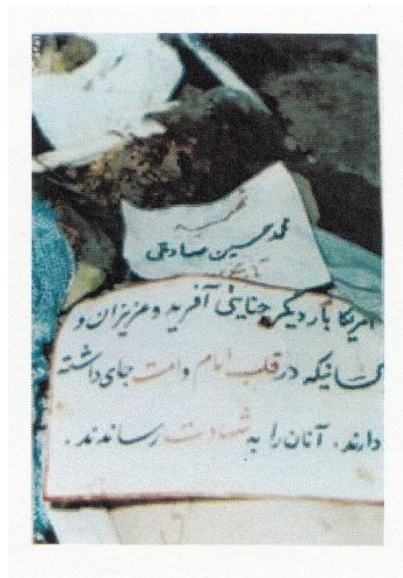 شهید
محمد حسین صادقی
آمریکا بار دیگر جنایتی آفرید و عزیزان و
کسانیکه در قلب امام و امت جای داشته
دارند. آنان را به شهادت رساندند.